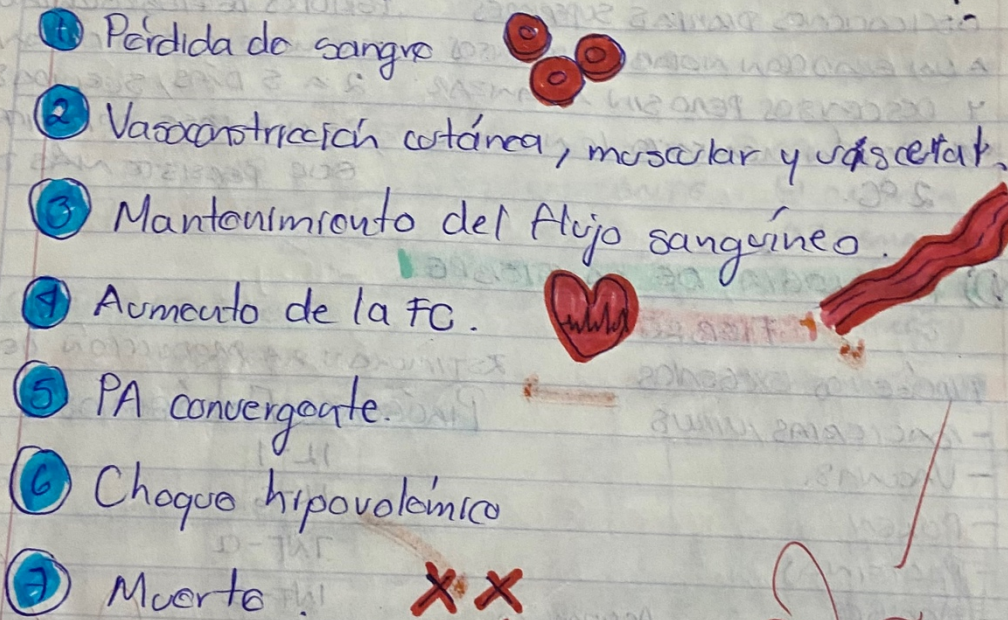 1 Pérdida de sangre
2 Vasoconstricción cutánea, muscular y visceral.
3 Mantenimiento del flujo sanguíneo.
4 Aumento de la FC.
5 PA convergente.
6 Choque hipovolémico
7 Muerte.